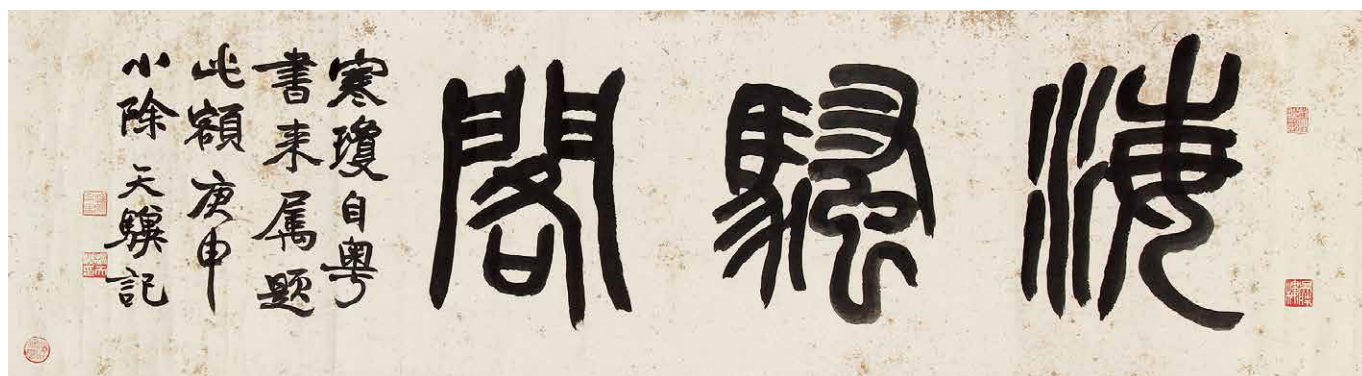 海騷閣
寒瓊自粤
書来属题
此額庚申
小除天驥記